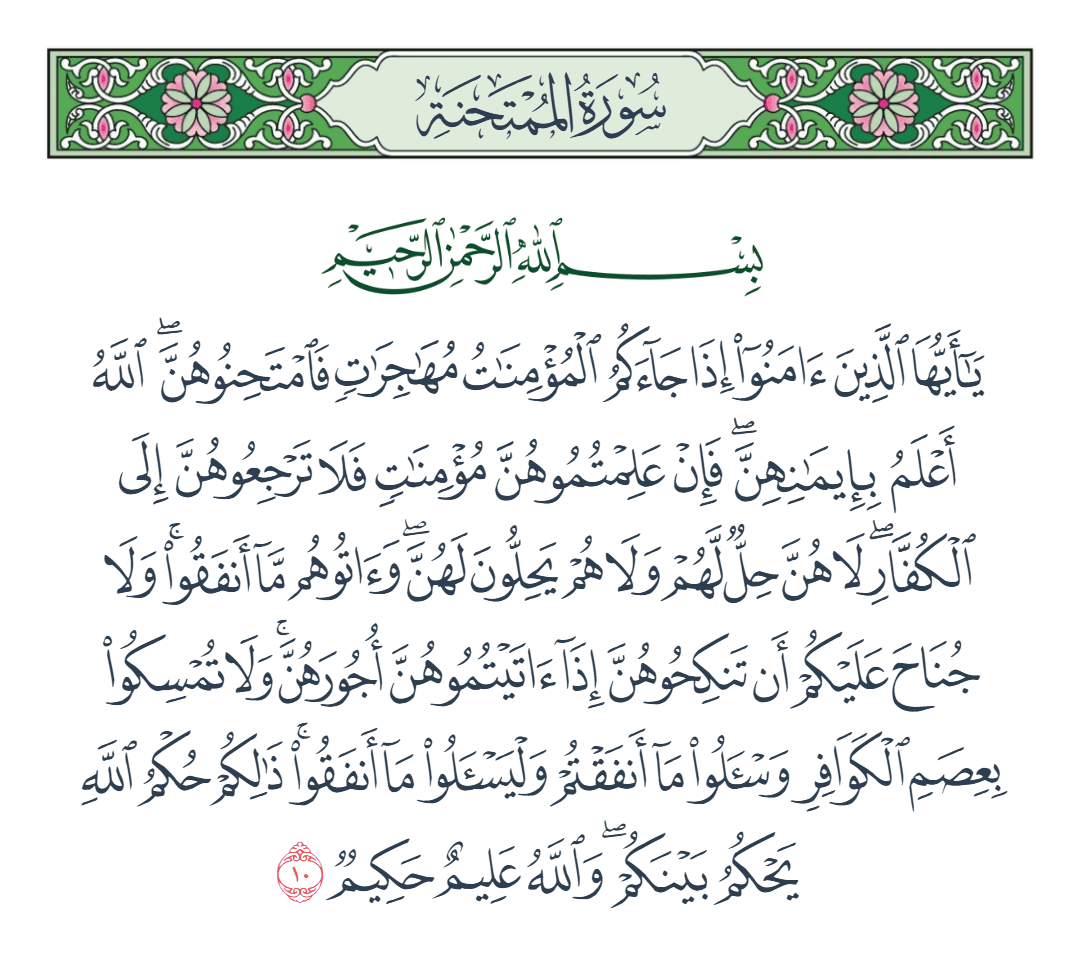 سُورَةُ الْمُمْتَحَنَةِ
بِسْمِ ٱللَّهِ ٱلرَّحْمَٰنِ ٱلرَّحِيمِ
يَٰٓأَيُّهَا ٱلَّذِينَ ءَامَنُوٓا۟ إِذَا جَآءَكُمُ ٱلْمُؤْمِنَٰتُ مُهَٰجِرَٰتٍ فَٱمْتَحِنُوهُنَّ ۖ ٱللَّهُ
أَعْلَمُ بِإِيمَٰنِهِنَّ ۖ فَإِنْ عَلِمْتُمُوهُنَّ مُؤْمِنَٰتٍ فَلَا تَرْجِعُوهُنَّ إِلَى
ٱلْكُفَّارِ ۖ لَا هُنَّ حِلٌّ لَّهُمْ وَلَا هُمْ يَحِلُّونَ لَهُنَّ ۖ وَءَاتُوهُم مَّآ أَنفَقُوا۟ ۚ وَلَا
جُنَاحَ عَلَيْكُمْ أَن تَنكِحُوهُنَّ إِذَآ ءَاتَيْتُمُوهُنَّ أُجُورَهُنَّ ۚ وَلَا تُمْسِكُوا۟
بِعِصَمِ ٱلْكَوَافِرِ وَسْـَٔلُوا۟ مَآ أَنفَقْتُمْ وَلْيَسْـَٔلُوا۟ مَآ أَنفَقُوا۟ ۚ ذَٰلِكُمْ حُكْمُ ٱللَّهِ
يَحْكُمُ بَيْنَكُمْ ۖ وَٱللَّهُ عَلِيمٌ حَكِيمٌ ١٠